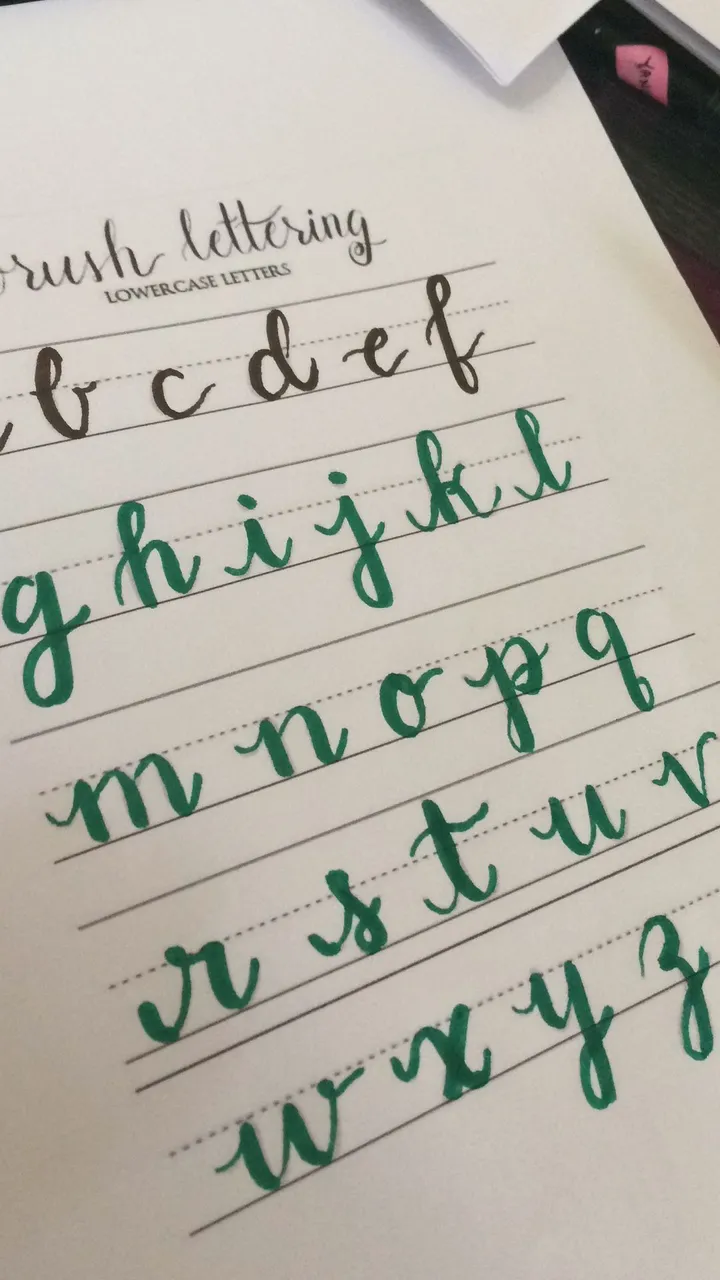 brush lettering
LOWERCASE LETTERS
b c d e f
g h i j k l
m n o p q
r s t u v
w x y z